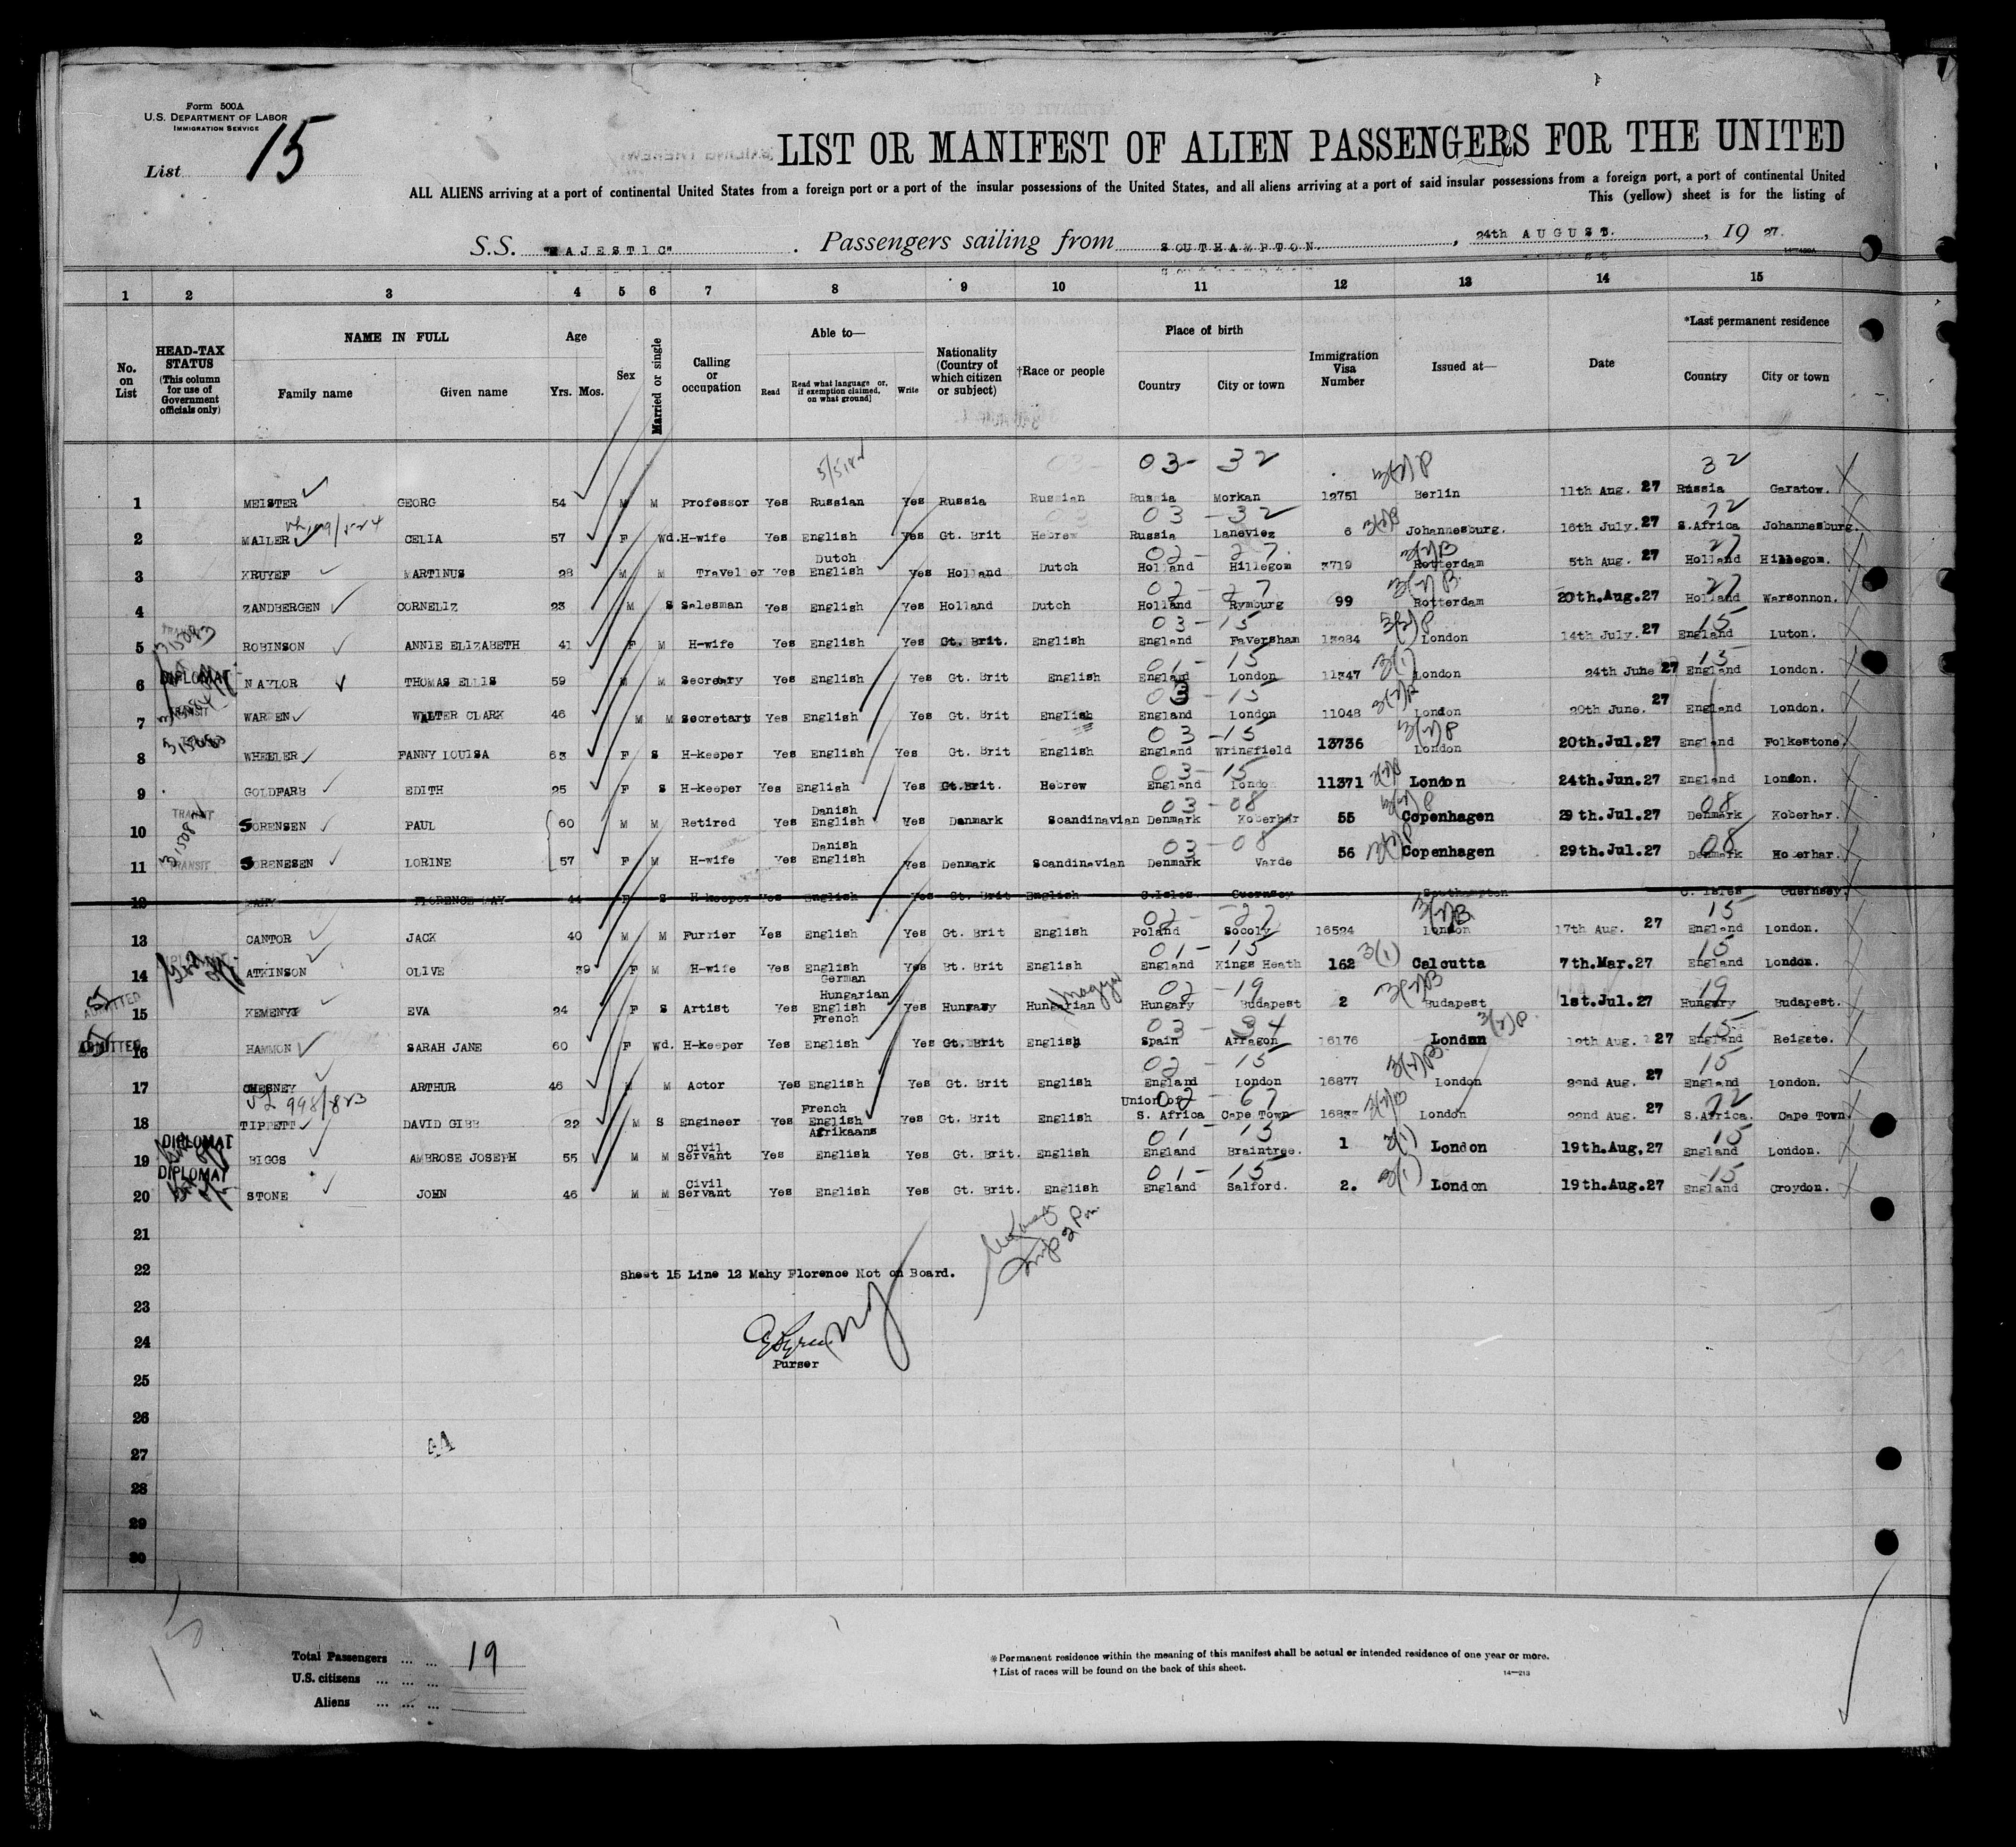 Form 500A
U.S. DEPARTMENT OF LABOR
IMMIGRATION SERVICE
List 15
LIST OR MANIFEST OF ALIEN PASSENGERS FOR THE UNITED
ALL ALIENS arriving at a port of continental United States from a foreign port or a port of the insular possessions of the United States, and all aliens arriving at a port of said insular possessions from a foreign port, a port of continental United
This (yellow) sheet is for the listing of
S.S. "MAJESTIC". Passengers sailing from SOUTHAMPTON. , 24th AUGUST. , 19 27.
1 2 3 4 5 6 7 8 9 10 11 12 13 14 15
No. on List
HEAD-TAX STATUS (This column for use of Government officials only)
NAME IN FULL
Family name Given name
Age
Yrs. Mos.
Sex
Married or single
Calling or occupation
Able to—
Read Read what language or, if exemption claimed, on what ground Write
Nationality (Country of which citizen or subject)
†Race or people
Place of birth
Country City or town
Immigration Visa Number
Issued at—
Date
*Last permanent residence
Country City or town
03- 32 3(2)P 32
1 MEISTER GEORG 54 M M Professor Yes Russian Yes Russia Russian Russia Morkan 12751 Berlin 11th Aug. 27 Russia Garatow.
03 - 32
2 MAILER CELIA 57 F Wd. H-wife Yes English Yes Gt. Brit Hebrew Russia Laneviez 6 Johannesburg. 16th July. 27 S.Africa Johannesburg.
02 - 27. 27
3 KRUYEF MARTINUS 28 M M Traveler Yes Dutch English Yes Holland Dutch Holland Hillegom 3719 Rotterdam 5th Aug. 27 Holland Hillegom.
02 - 27 27
4 ZANDBERGEN CORNELIZ 23 M S Salesman Yes English Yes Holland Dutch Holland Rymburg 99 Rotterdam 20th.Aug.27 Holland Warsonnon.
03 - 15 15
5 ROBINSON ANNIE ELIZABETH 41 F M H-wife Yes English Yes Gt. Brit. English England Faversham 13284 London 14th July. 27 England Luton.
01 - 15 3(1) 15
6 DIPLOMAT NAYLOR THOMAS ELLIS 59 M M Secretary Yes English Yes Gt. Brit English England London 11347 London 24th June 27 England London.
03 - 15
7 TRANSIT WARREN WALTER CLARK 46 M M Secretary Yes English Yes Gt. Brit English England London 11048 London 20th June. 27 England London.
03 - 15
8 WHEELER FANNY LOUISA 63 F S H-keeper Yes English Yes Gt. Brit English England Wringfield 13736 London 20th.Jul.27 England Folkestone.
03 - 15
9 GOLDFARB EDITH 25 F S H-keeper Yes English Yes Gt.Brit. Hebrew England London 11371 London 24th.Jun.27 England London.
03 - 08 08
10 TRANSIT SORENSEN PAUL 60 M M Retired Yes Danish English Yes Denmark Scandinavian Denmark Koberhar 55 Copenhagen 29th.Jul.27 Denmark Koberhar.
03 - 08 08
11 TRANSIT SORENESEN LORINE 57 F M H-wife Yes Danish English Yes Denmark Scandinavian Denmark Varde 56 Copenhagen 29th.Jul.27 Denmark Koberhar.
12 MAHY FLORENCE MAY 44 F S H-keeper Yes English Yes Gt. Brit English C.Isles Guernsey Southampton C. Isles Guernsey.
02 - 27 15
13 CANTOR JACK 40 M M Furrier Yes English Yes Gt. Brit English Poland Socoly 16524 London 17th Aug. 27 England London.
01 - 15 3(1) 15
14 ATKINSON OLIVE 39 F M H-wife Yes English Yes Bt. Brit English England Kings Heath 162 Calcutta 7th.Mar.27 England London.
02 - 19 19
15 KEMENYI EVA 24 F S Artist Yes German Hungarian English French Yes Hungary Hungarian Magyar Hungary Budapest 2 Budapest 1st.Jul.27 Hungary Budapest.
03 - 34 3(2)P 15
16 ADMITTED HAMMON SARAH JANE 60 F Wd. H-keeper Yes English Yes Gt. Brit English Spain Arragon 16176 London 12th Aug. 27 England Reigate.
02 - 15 15
17 CHESNEY ARTHUR 46 M M Actor Yes English Yes Gt. Brit English England London 16877 London 22nd Aug. 27 England London.
02 - 67
18 TIPPETT DAVID GIBB 22 M S Engineer Yes French English Afrikaans Yes Gt. Brit English Union of S. Africa Cape Town London 22nd Aug. 27 S.Africa. Cape Town.
01 - 15 3(1) 15
19 DIPLOMAT BIGGS AMBROSE JOSEPH 55 M M Civil Servant Yes English Yes Gt. Brit. English England Braintree. 1 London 19th.Aug.27 England London.
01 - 15 3(1) 15
20 DIPLOMAT STONE JOHN 46 M M Civil Servant Yes English Yes Gt. Brit. English England Salford. 2. London 19th.Aug.27 England Croydon.
21
22 Sheet 15 Line 12 Mahy Florence Not on Board.
23
24
Purser
25
26
27
44
28
29
30
Total Passengers ... ... 19
U.S. citizens ... ... ...
Aliens ... ... ...
*Permanent residence within the meaning of this manifest shall be actual or intended residence of one year or more.
†List of races will be found on the back of this sheet.
14—213